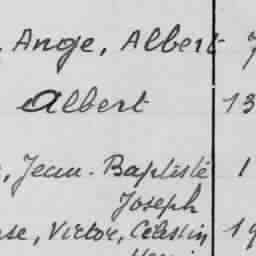 , Ange, Albert
Albert 13
, Jean-Baptiste 1
Joseph
se, Victor, Célestin 19